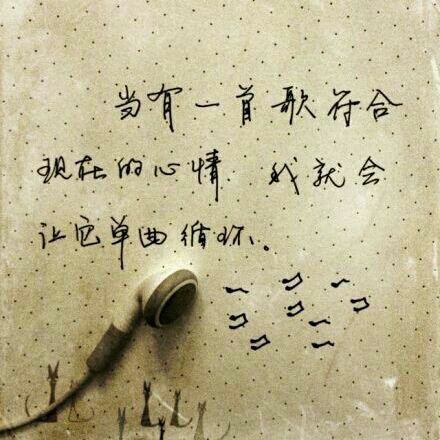 当有一首歌符合
现在的心情 我就会
让它单曲循环。